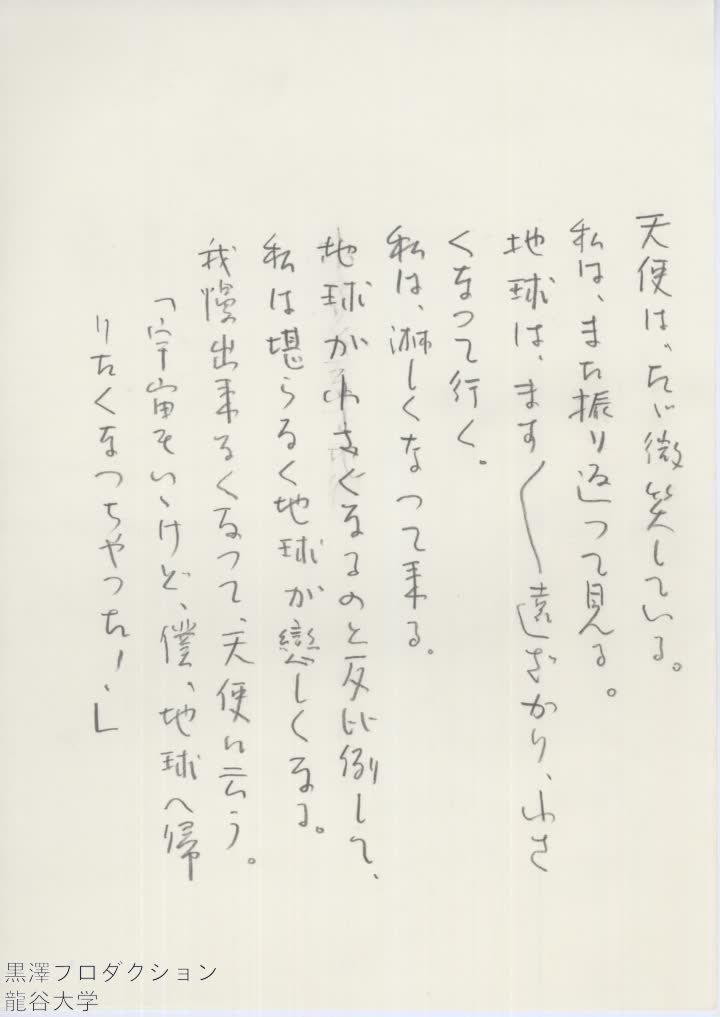 天使は、たゞ微笑している。
私は、また振り返つて見る。
地球は、ます〳〵遠ざかり、小さ
くなつて行く。
私は、淋しくなつて来る。
地球が小さくなるのと反比例して、
私は堪らなく地球が戀しくなる。
我慢出来なくなつて、天使に云う。
「宇宙もいゝけど、僕、地球へ帰
りたくなつちやつた！」
黒澤プロダクション
龍谷大学